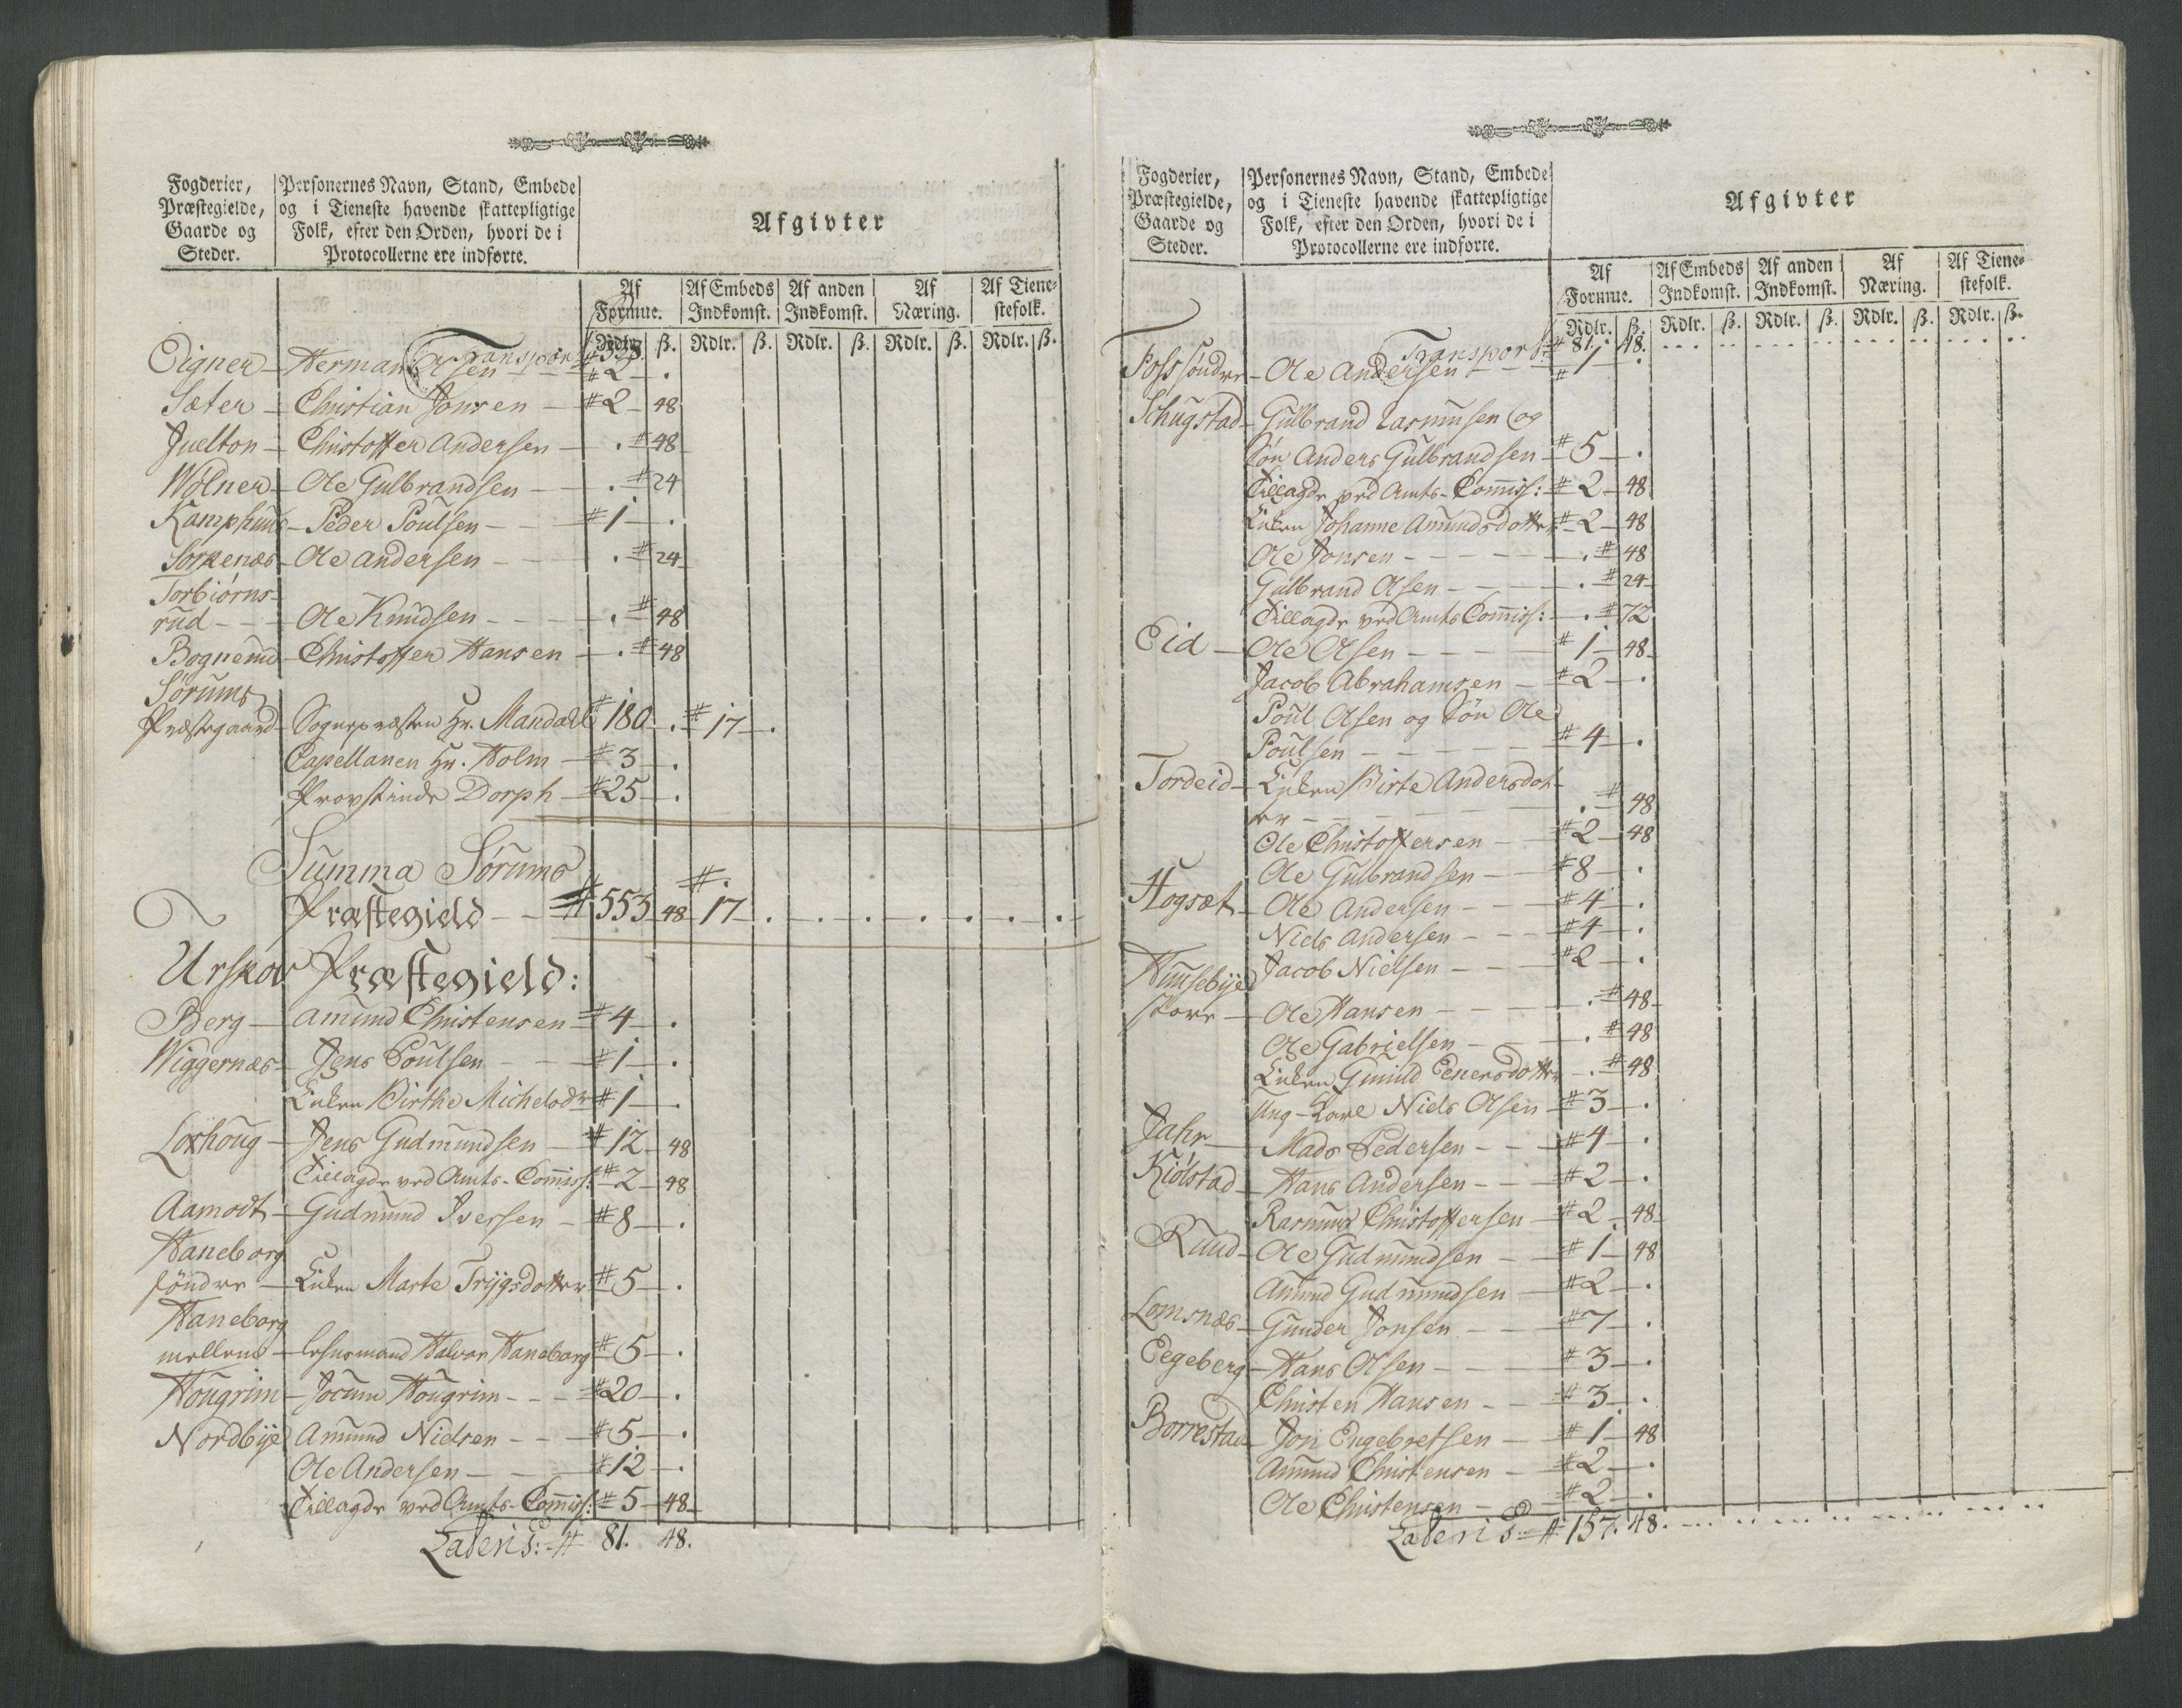 Fogderier, Præstegielde, Gaarde og Steder.
Personernes Navn, Stand, Embede og i Tieneste havende skattepligtige Folk, efter den Orden, hvori de i Protocollerne ere indførte.
Afgivter
Af Formue. Af Embeds Indkomst. Af anden Indkomst. Af Næring. Af Tienestefolk.
Rdlr. ß. Rdlr. ß. Rdlr. ß. Rdlr. ß. Rdlr. ß.
Transport
Eigner - Herman Olsen - # 2 - .
Sæter - Christian Jonsen - # 2 - 48
Juelton - Christoffer Andersen - . # 48
Wølner - Ole Gulbrandsen - . # 24
Kamphuus - Peder Poulsen - # 1 - .
Sorkenæs - Ole Andersen - . # 24
Torbiørns-
rud - Ole Knudsen - . # 48
Christoffer Hansen - . # 48
Sørums
Præstegaard - Sognepræsten Hr. Mandahl # 180 - . # 17 - .
Capellanen Hr. Holm - # 3 - .
Provstinde Dorph - # 25 - .
Summa Sørums
Præstegield - # 553 48 # 17 - . . . . . . .
Urskov Præstegield:
Berg - Amund Christensen - # 4 - .
Wiggernæs - Jens Poulsen - # 1 - .
Enken Birthe Michelsdr # 1 - .
Loxhoug - Jens Gudmundsen - # 12 - 48
Tillagde ved Amts-Commiss: # 2 - 48
Aamodt - Gudmund Iversen - # 8 - .
Haneborg
søndre - Enken Marte Trygsdotter # 5 - .
Haneborg
mellem - Lensmand Halvor Haneborg # 5 - .
Hougrim - Jocum Hougrim - # 20 - .
Nordbye Amund Nielsen - # 5 - .
Ole Andersen - # 12 - .
Tillagde ved Amts-Commiss: # 5 - 48
Lateris: # 81. 48.
Fogderier, Præstegielde, Gaarde og Steder.
Personernes Navn, Stand, Embede og i Tieneste havende skattepligtige Folk, efter den Orden, hvori de i Protocollerne ere indførte.
Afgivter
Af Formue. Af Embeds Indkomst. Af anden Indkomst. Af Næring. Af Tienestefolk.
Rdlr. ß. Rdlr. ß. Rdlr. ß. Rdlr. ß. Rdlr. ß.
Transport # 81. 48.
Foss søndre - Ole Andersen - # 1 - .
Schugstad - Gulbrand Rasmusen og
Søn Anders Gulbrandsen # 5 - .
Tillagde ved Amts-Commiss: # 2 - 48
Enken Johanne Amundsdotter # 2 - 48
Ole Jonsen - . # 48
Gulbrand Olsen - . # 24
Tillagde ved Amts Commiss: - . # 72
Eid - Ole Olsen - # 1 - 48
Jacob Abrahamsen - # 2 - .
Poul Olsen og Søn Ole
Poulsen - # 4 - .
Tordeid - Enken Birte Andersdot-
er - . # 48
Ole Christoffersen - # 2 - 48
Ole Gulbrandsen - # 8 - .
Hogsæt - Ole Andersen - # 4 - .
Niels Andersen - # 4 - .
Huusebye Jacob Nielsen - # 2 - .
store - Ole Hansen - . # 48
Ole Gabrielsen - . # 48
Enken - . # 48
Ung-Karl Niels Olsen # 3 - .
Jahr - Mads Pedersen - # 4 - .
Kiölstad - Hans Andersen - # 2 - .
Rasmus Christoffersen - # 2 - 48
Ruud - Ole Gudmundsen - # 1 - 48
Amund Gudmundsen - # 2 - .
Lomsnæs - Gunder Jonsen - # 7 - .
Eegeberg - Hans Olsen - # 3 - .
Christen Hansen - # 3 - .
Borrestad - Jon Engebretsen - # 1 - 48
Amund Christensen - # 2 - .
Ole Christensen - # 2 - .
Lateris # 157. 48.